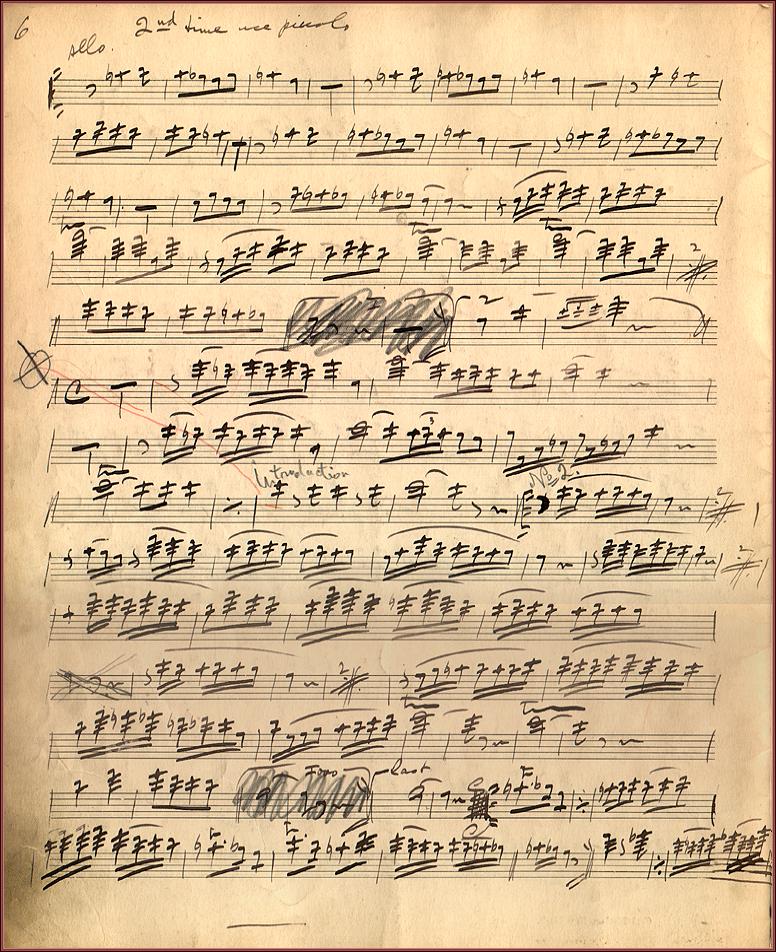 6
2nd time use piccolo
Allo.
2
2
Introduction
No 2.
2
2
2
last